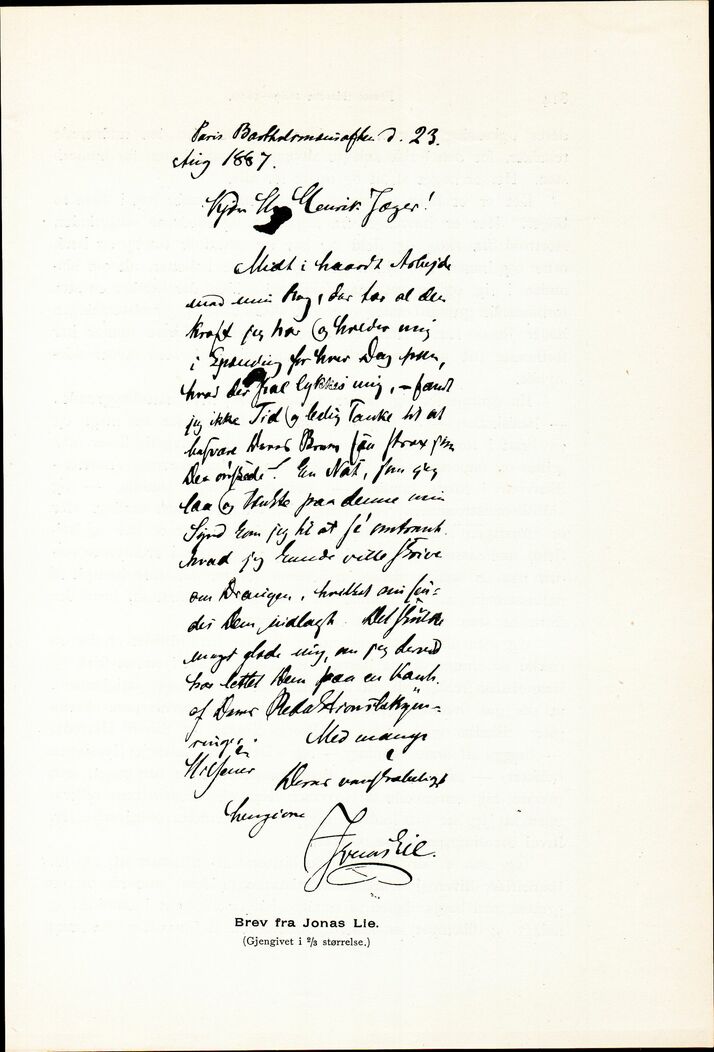 Paris Bartholomæusaften d. 23.
Aug 1887.
Kjære Hr Henrik Jæger!
Midt i haardt Arbejde
med min Bog, der tar al den
kraft jeg har og holder mig
i Spænding for hver Dag paa,
hvad der skal lykkes mig, – fandt
jeg ikke Tid og ledig Tanke til at
besvare Deres Brev saa strax som
De ønskede. En Nat, som jeg
laa og tænkte paa denne min
Synd kom jeg til at se omtrent
hvad jeg kunde ville skrive
om Draugen, hvilket
Dem indlagt. Det skulde
meget glæde mig, om jeg derved
har lettet Dem paa en Kant
af Deres Redaktionsbekym-
ringer. Med mange
Hilsener
Deres venskabeligt
hengivne
Jonas Lie.
Brev fra Jonas Lie.
(Gjengivet i 2/3 størrelse.)